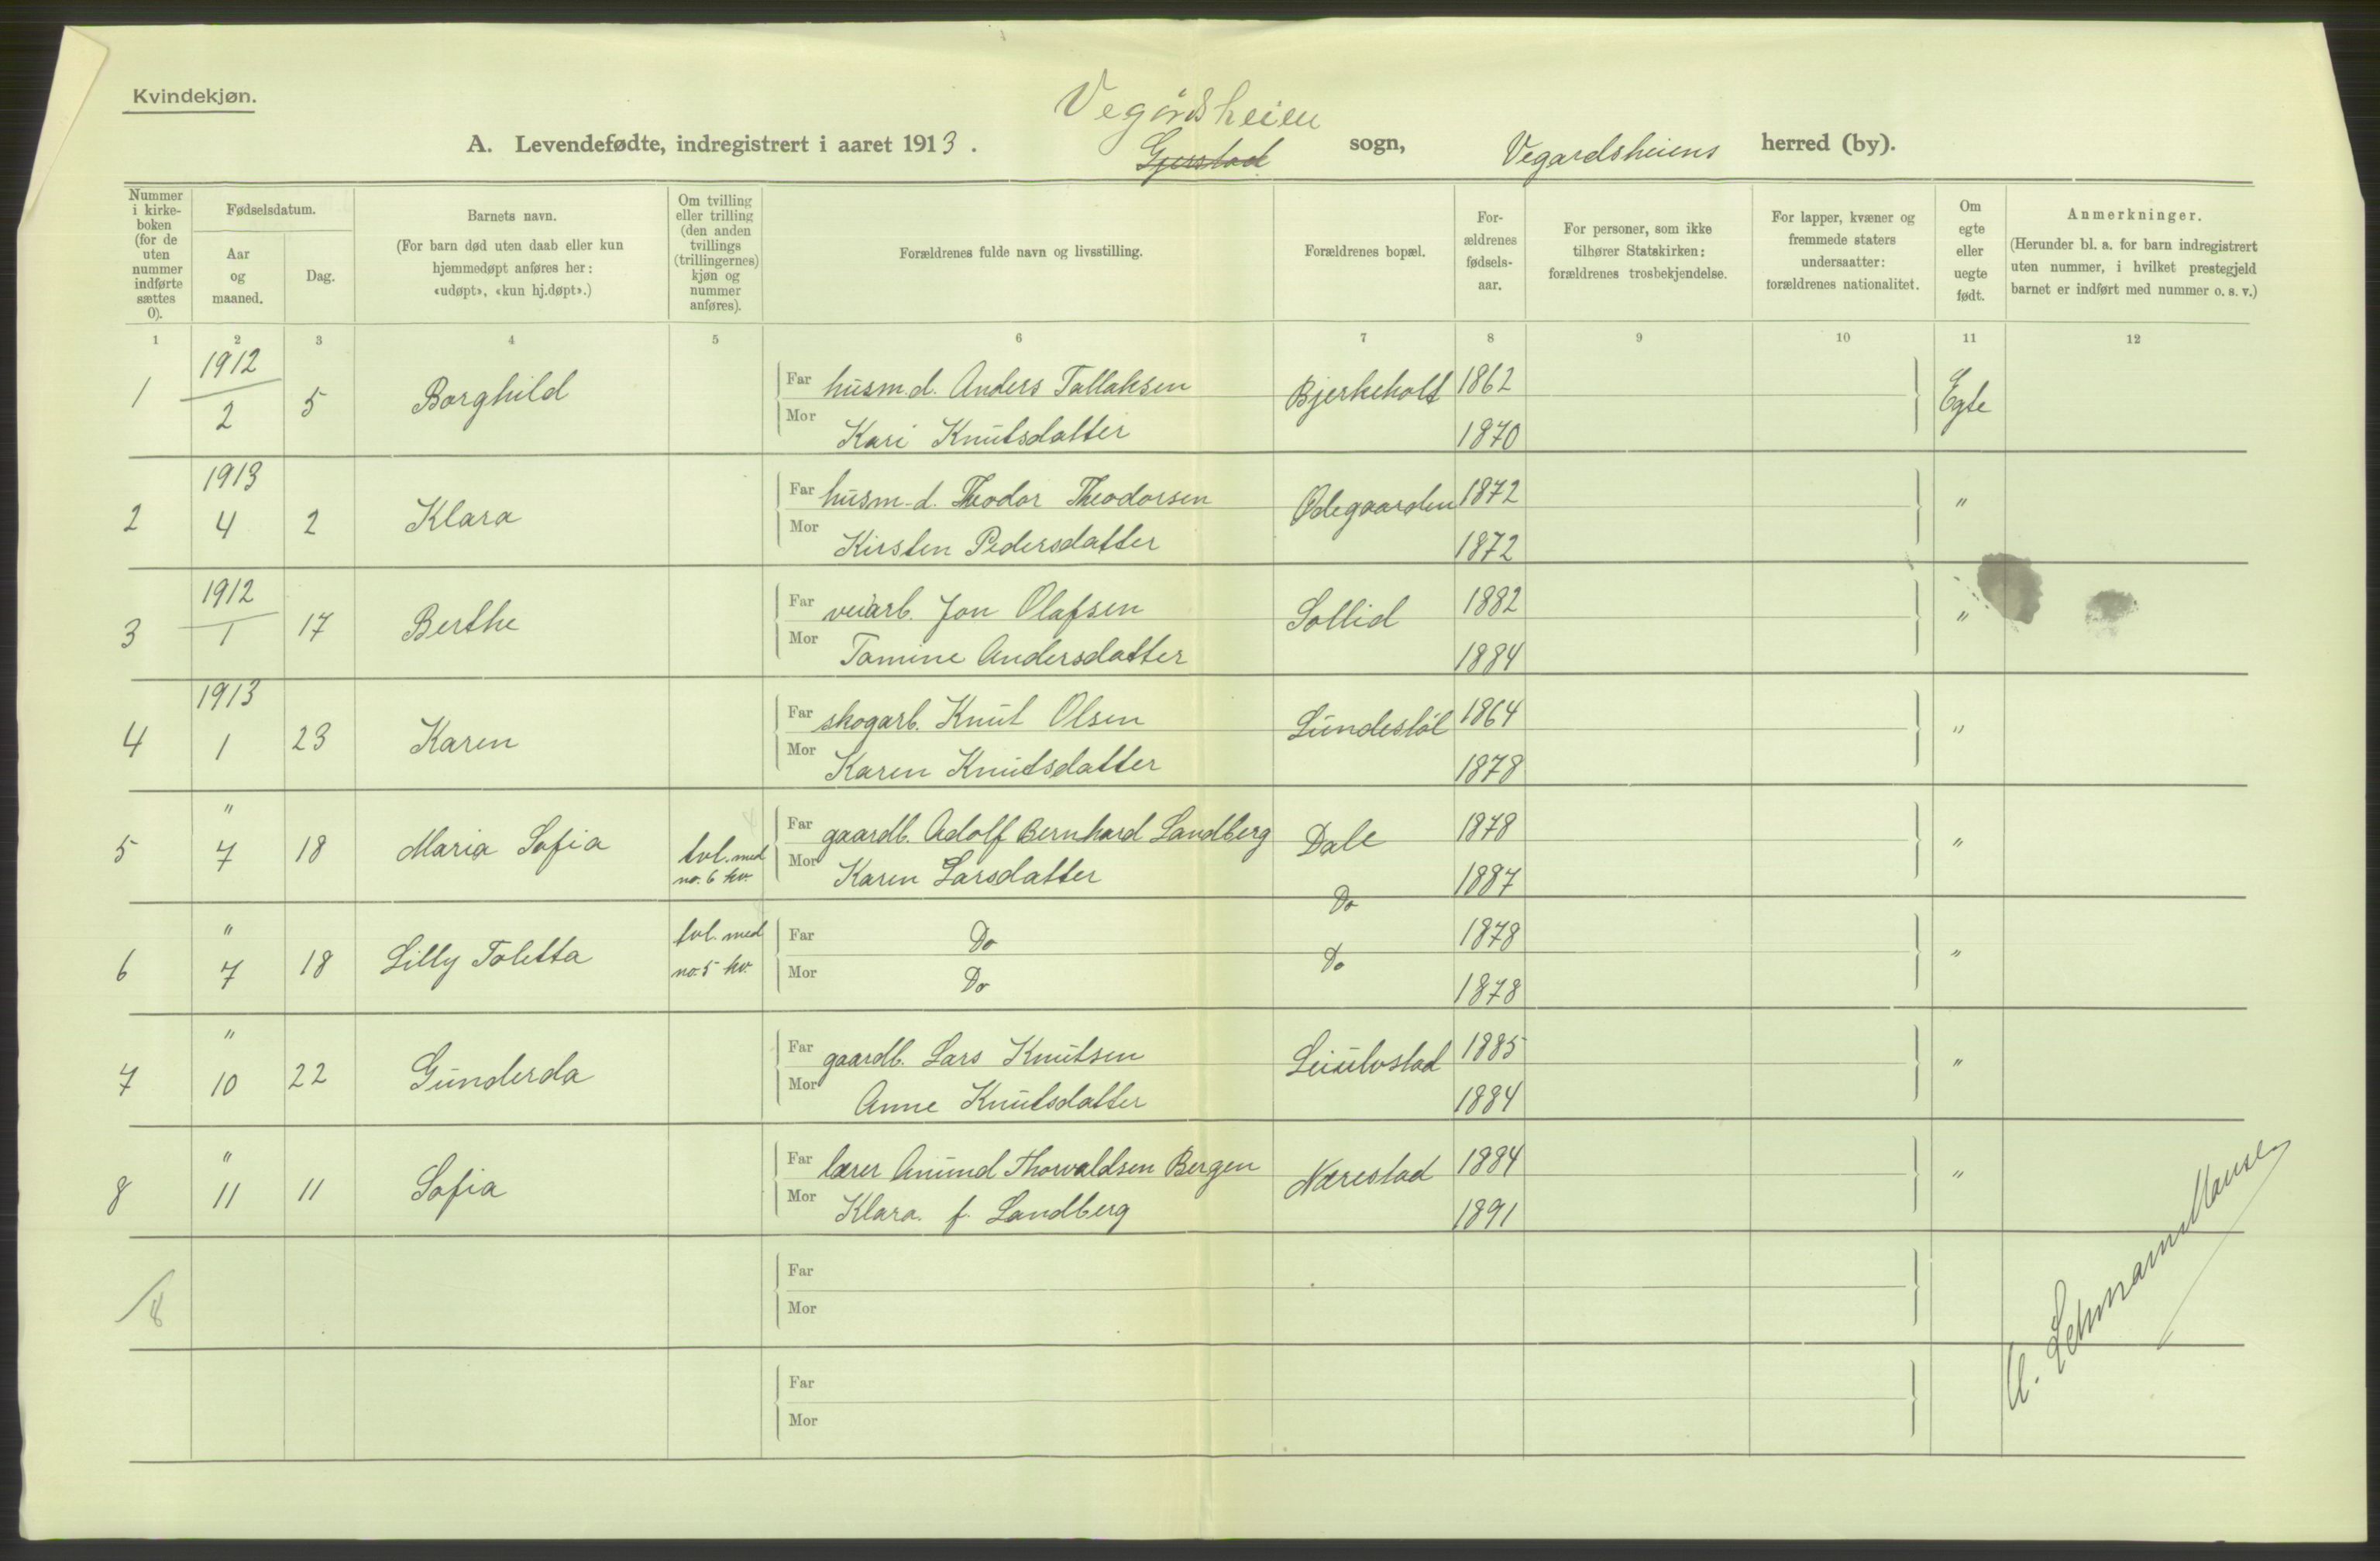 Kvindekjøn.
Vegårdsheien
A. Levendefødte, indregistrert i aaret 1913. Gjerstad sogn, Vegardsheiens herred (by).
Nummer i kirke-boken (for de uten nummer indførte sættes 0).
Fødselsdatum.
Aar og maaned.
Dag.
Barnets navn.
(For barn død uten daab eller kun hjemmedøpt anføres her: «udøpt», «kun hj.døpt».)
Om tvilling eller trilling (den anden tvillings (trillingernes) kjøn og nummer anføres).
Forældrenes fulde navn og livsstilling.
Forældrenes bopæl.
For-ældrenes fødsels-aar.
For personer, som ikke tilhører Statskirken: forældrenes trosbekjendelse.
For lapper, kvæner og fremmede staters undersaatter: forældrenes nationalitet.
Om egte eller uegte født.
Anmerkninger.
(Herunder bl. a. for barn indregistrert uten nummer, i hvilket prestegjeld barnet er indført med nummer o. s. v.)
1 2 3 4 5 6 7 8 9 10 11 12
1 1912 2 5 Borghild Far husm.d. Anders Tallaksen Bjerkeholt 1862 Egte
Mor Kari Knutsdatter 1870
2 1913 4 2 Klara Far husm-d. Theodor Theodorsen Ødegaarden 1872 "
Mor Kirsten Pedersdatter 1872
3 1912 1 17 Berthe Far veiarb. Jon Olafsen Sollid 1882 "
Mor Tomine Andersdatter 1884
4 1913 1 23 Karen Far skogarb. Knut Olsen Lundestøl 1864 "
Mor Karen Knutsdatter 1878
5 " 7 18 Maria Sofia tvl. med no. 6 kv. Far gaardb. Adolf Bernhard Landberg Dale 1878 "
Mor Karen Larsdatter Do 1887
6 " 7 18 Lilly Toletta tvl. med no. 5 kv. Far Do Do 1878 "
Mor Do 1878
7 " 10 22 Gunderda Far gaardb. Lars Knutsen Leiulvstad 1885 "
Mor Anne Knutsdatter 1884
8 " 11 11 Sofia Far lærer Anund Thorvaldsen Bergen Nærestad 1884 "
Mor Klara f. Landberg 1891
/8 Far
Mor
Far
Mor